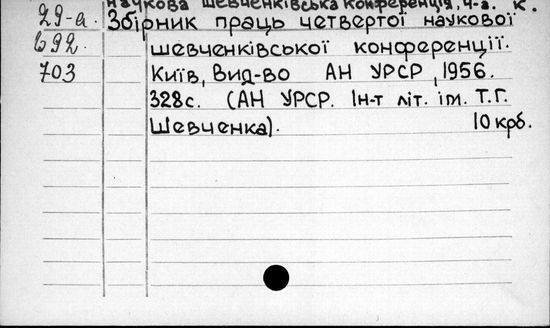 наукова шевченківська конференція, 4-а. К.
29-а. Збірник праць четвертої наукової
692. шевченківської конференції.
703 Київ, Вид-во АН УРСР, 1956.
328с. (АН УРСР. Ін-т літ. ім. Т.Г.
Шевченка). 10 крб.